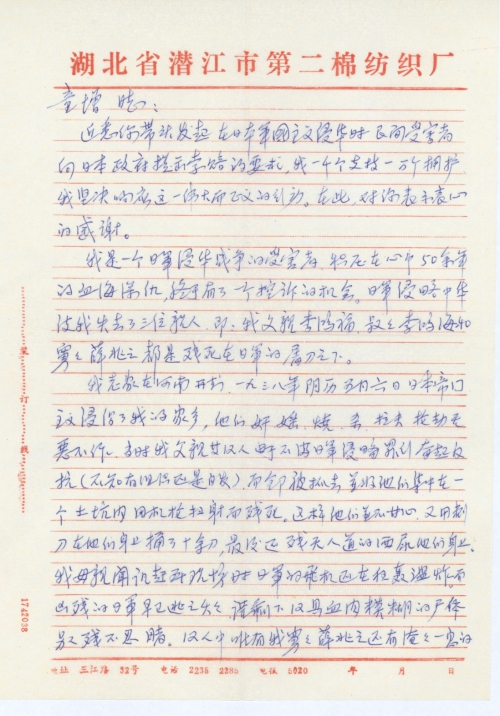 湖北省潜江市第二棉纺织厂
童增同志：
近悉你带头发起在日本军国主义侵华时民间受害者
向日本政府提出索赔的要求，我一千个支持一万个拥护
我坚决响应这一伟大而正义的行动。在此，对你表示衷心
的感谢。
我是一个日军侵华战争的受害者，积压在心中50余年
的血海深仇，终于有了一个控诉的机会。日军侵略中华
使我失去了三位亲人，即：我父亲李鸿福，叔父李鸿海和
薛兆 都是残死在日军的屠刀之下。
我老家在河南开封，一九三八年阴历五月六日日本帝国
主义侵占了我的家乡，他们奸、烧、杀、抢无
恶不作。当时我父亲等仅人由于不满日军侵略 奋起反
抗（不知有旧仇还是自发）而全部被抓去 并将他们集中在一
个土坑内用机枪扫射而残死。这样他们并不甘心，又用刺
刀在他们身上捅了十余刀，最后还残无人道的 他们身上
我母亲闻讯赶到现场时日军的飞机还在狂轰滥炸，而
凶残的日军早已逃之夭夭 血肉模糊的尸体
残不忍睹。 薛兆 还有奄奄一息的
地址 三江路 32号 电话 2235 2285 电挂 5020 年 月 日
装 订 线
1742038